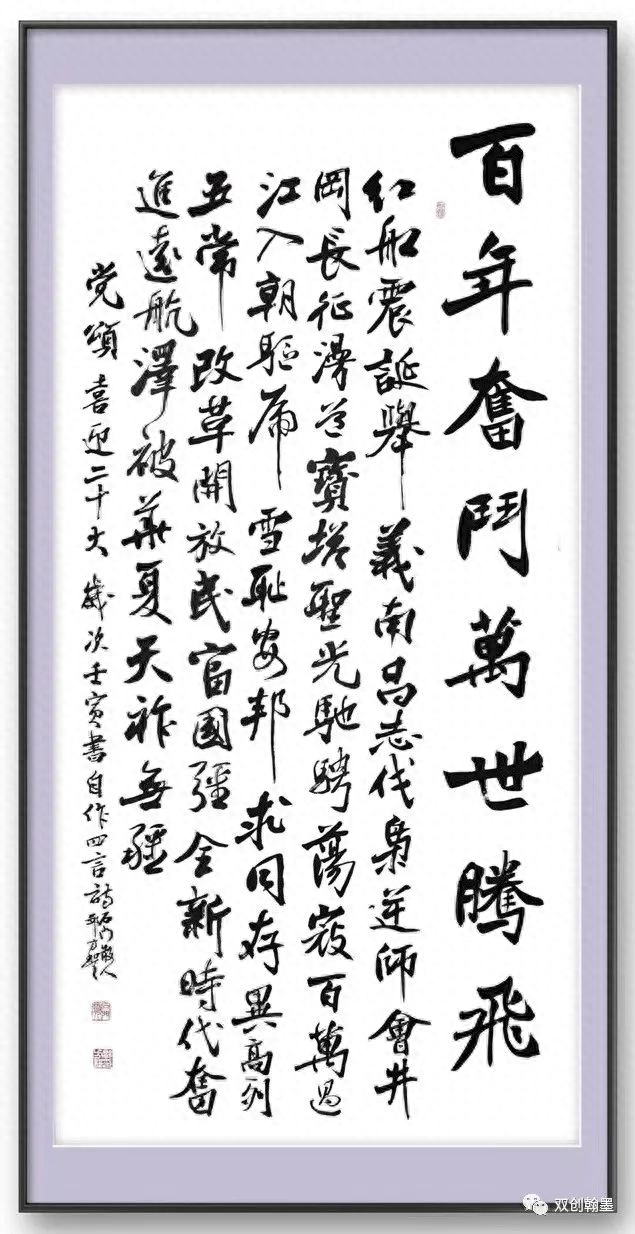 百年奮鬥萬世騰飛
紅船震誕舉義南昌志伐梟逆師會井
岡長征漫道寶塔聖光馳騁蕩寇百萬過
江入朝驅虎雪耻安邦求同存異高列
五常改革開放民富國強全新時代奮
進遠航澤被華夏天祚無疆
党頌喜迎二十大歲次壬寅書自作四言詩
双创翰墨